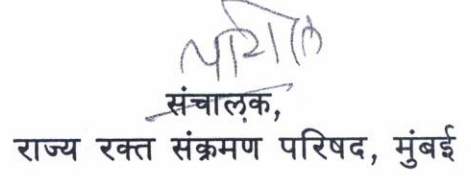 संचालक,
राज्य रक्त संक्रमण परिषद, मुंबई